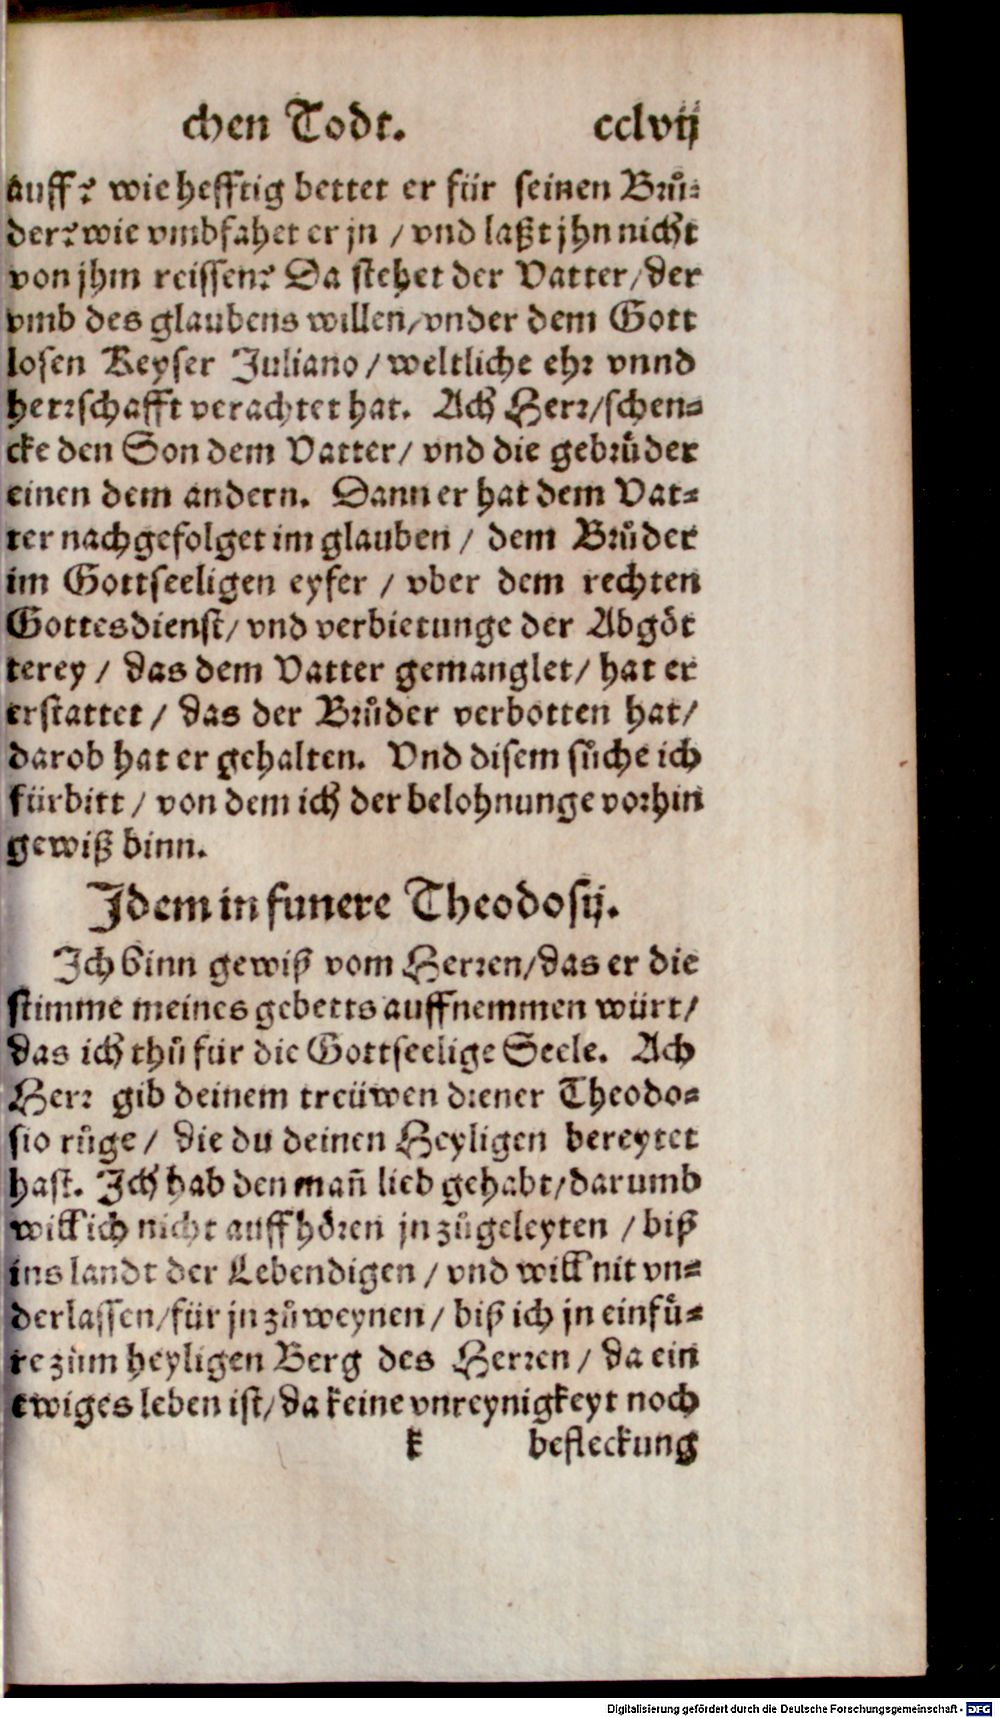 chen Todt. cclvij
auff? wie hefftig bettet er für seinen Brů-
der? wie vmbfahet er jn / vnd laßt jhn nicht
von jhm reissen? Da stehet der Vatter / der
vmb des glaubens willen / vnder dem Gott
losen Keyser Juliano / weltliche ehr vnnd
herrschafft verachtet hat. Ach Herr / schen-
cke den Son dem Vatter / vnd die gebrůder
einen dem andern. Dann er hat dem Vat-
ter nachgefolget im glauben / dem Brůder
im Gottseeligen eyfer / vber dem rechten
Gottesdienst / vnd verbietunge der Abgöt
terey / das dem Vatter gemanglet / hat er
erstattet / das der Brůder verbotten hat /
darob hat er gehalten. Vnd disem sůche ich
fürbitt / von dem ich der belohnunge vorhin
gewiß binn.
Idem in funere Theodosij.
Ich binn gewiß vom Herren / das er die
stimme meines gebetts auffnemmen würt /
das ich thů für die Gottseelige Seele. Ach
Herr gib deinem treüwen diener Theodo-
sio růge / die du deinen Heyligen bereytet
hast. Ich hab den mañ lieb gehabt / darumb
will ich nicht auffhören jn zůgeleyten / biß
ins landt der Lebendigen / vnd will nit vn-
derlassen / für jn zůweynen / biß ich jn einfů-
re zům heyligen Berg des Herren / da ein
ewiges leben ist / da keine vnreynigkeyt noch
k befleckung
Digitalisierung gefördert durch die Deutsche Forschungsgemeinschaft - DFG